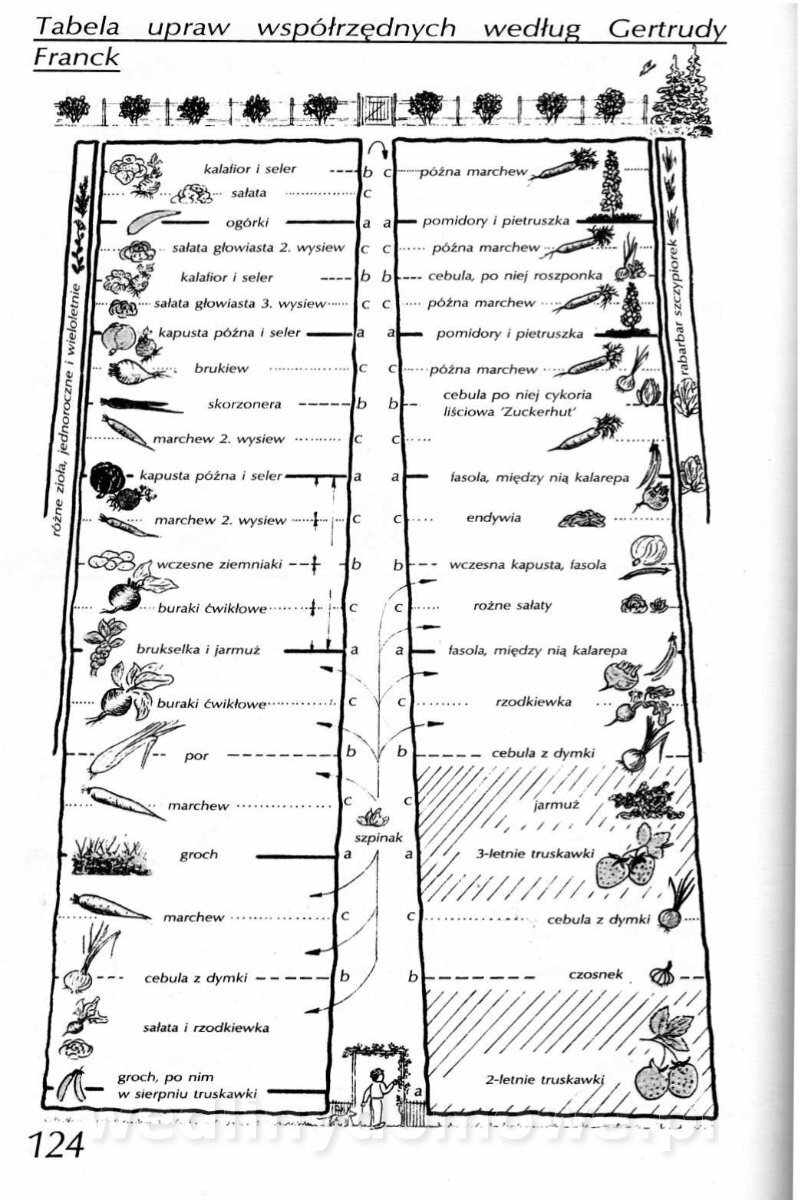 Tabela upraw współrzędnych według Gertrudy
Franck
różne zioła, jednoroczne i wieloletnie
kalafior i seler b
sałata c
ogórki a
sałata głowiasta 2. wysiew c
kalafior i seler b
sałata głowiasta 3. wysiew c
kapusta późna i seler a
brukiew c
skorzonera b
marchew 2. wysiew c
kapusta późna i seler a
marchew 2. wysiew c
wczesne ziemniaki b
buraki ćwikłowe c
brukselka i jarmuż a
buraki ćwikłowe c
por b
marchew c
groch a
marchew c
cebula z dymki b
sałata i rzodkiewka
groch, po nim
w sierpniu truskawki
szpinak
c późna marchew
a pomidory i pietruszka
c późna marchew
b cebula, po niej roszponka
c późna marchew
a pomidory i pietruszka
c późna marchew
b cebula po niej cykoria
liściowa 'Zuckerhut'
c
a fasola, między nią kalarepa
c endywia
b wczesna kapusta, fasola
c rożne sałaty
a fasola, między nią kalarepa
c rzodkiewka
b cebula z dymki
c jarmuż
a 3-letnie truskawki
c cebula z dymki
b czosnek
a 2-letnie truskawki
rabarbar szczypiorek
124
wedlinydomowe.pl